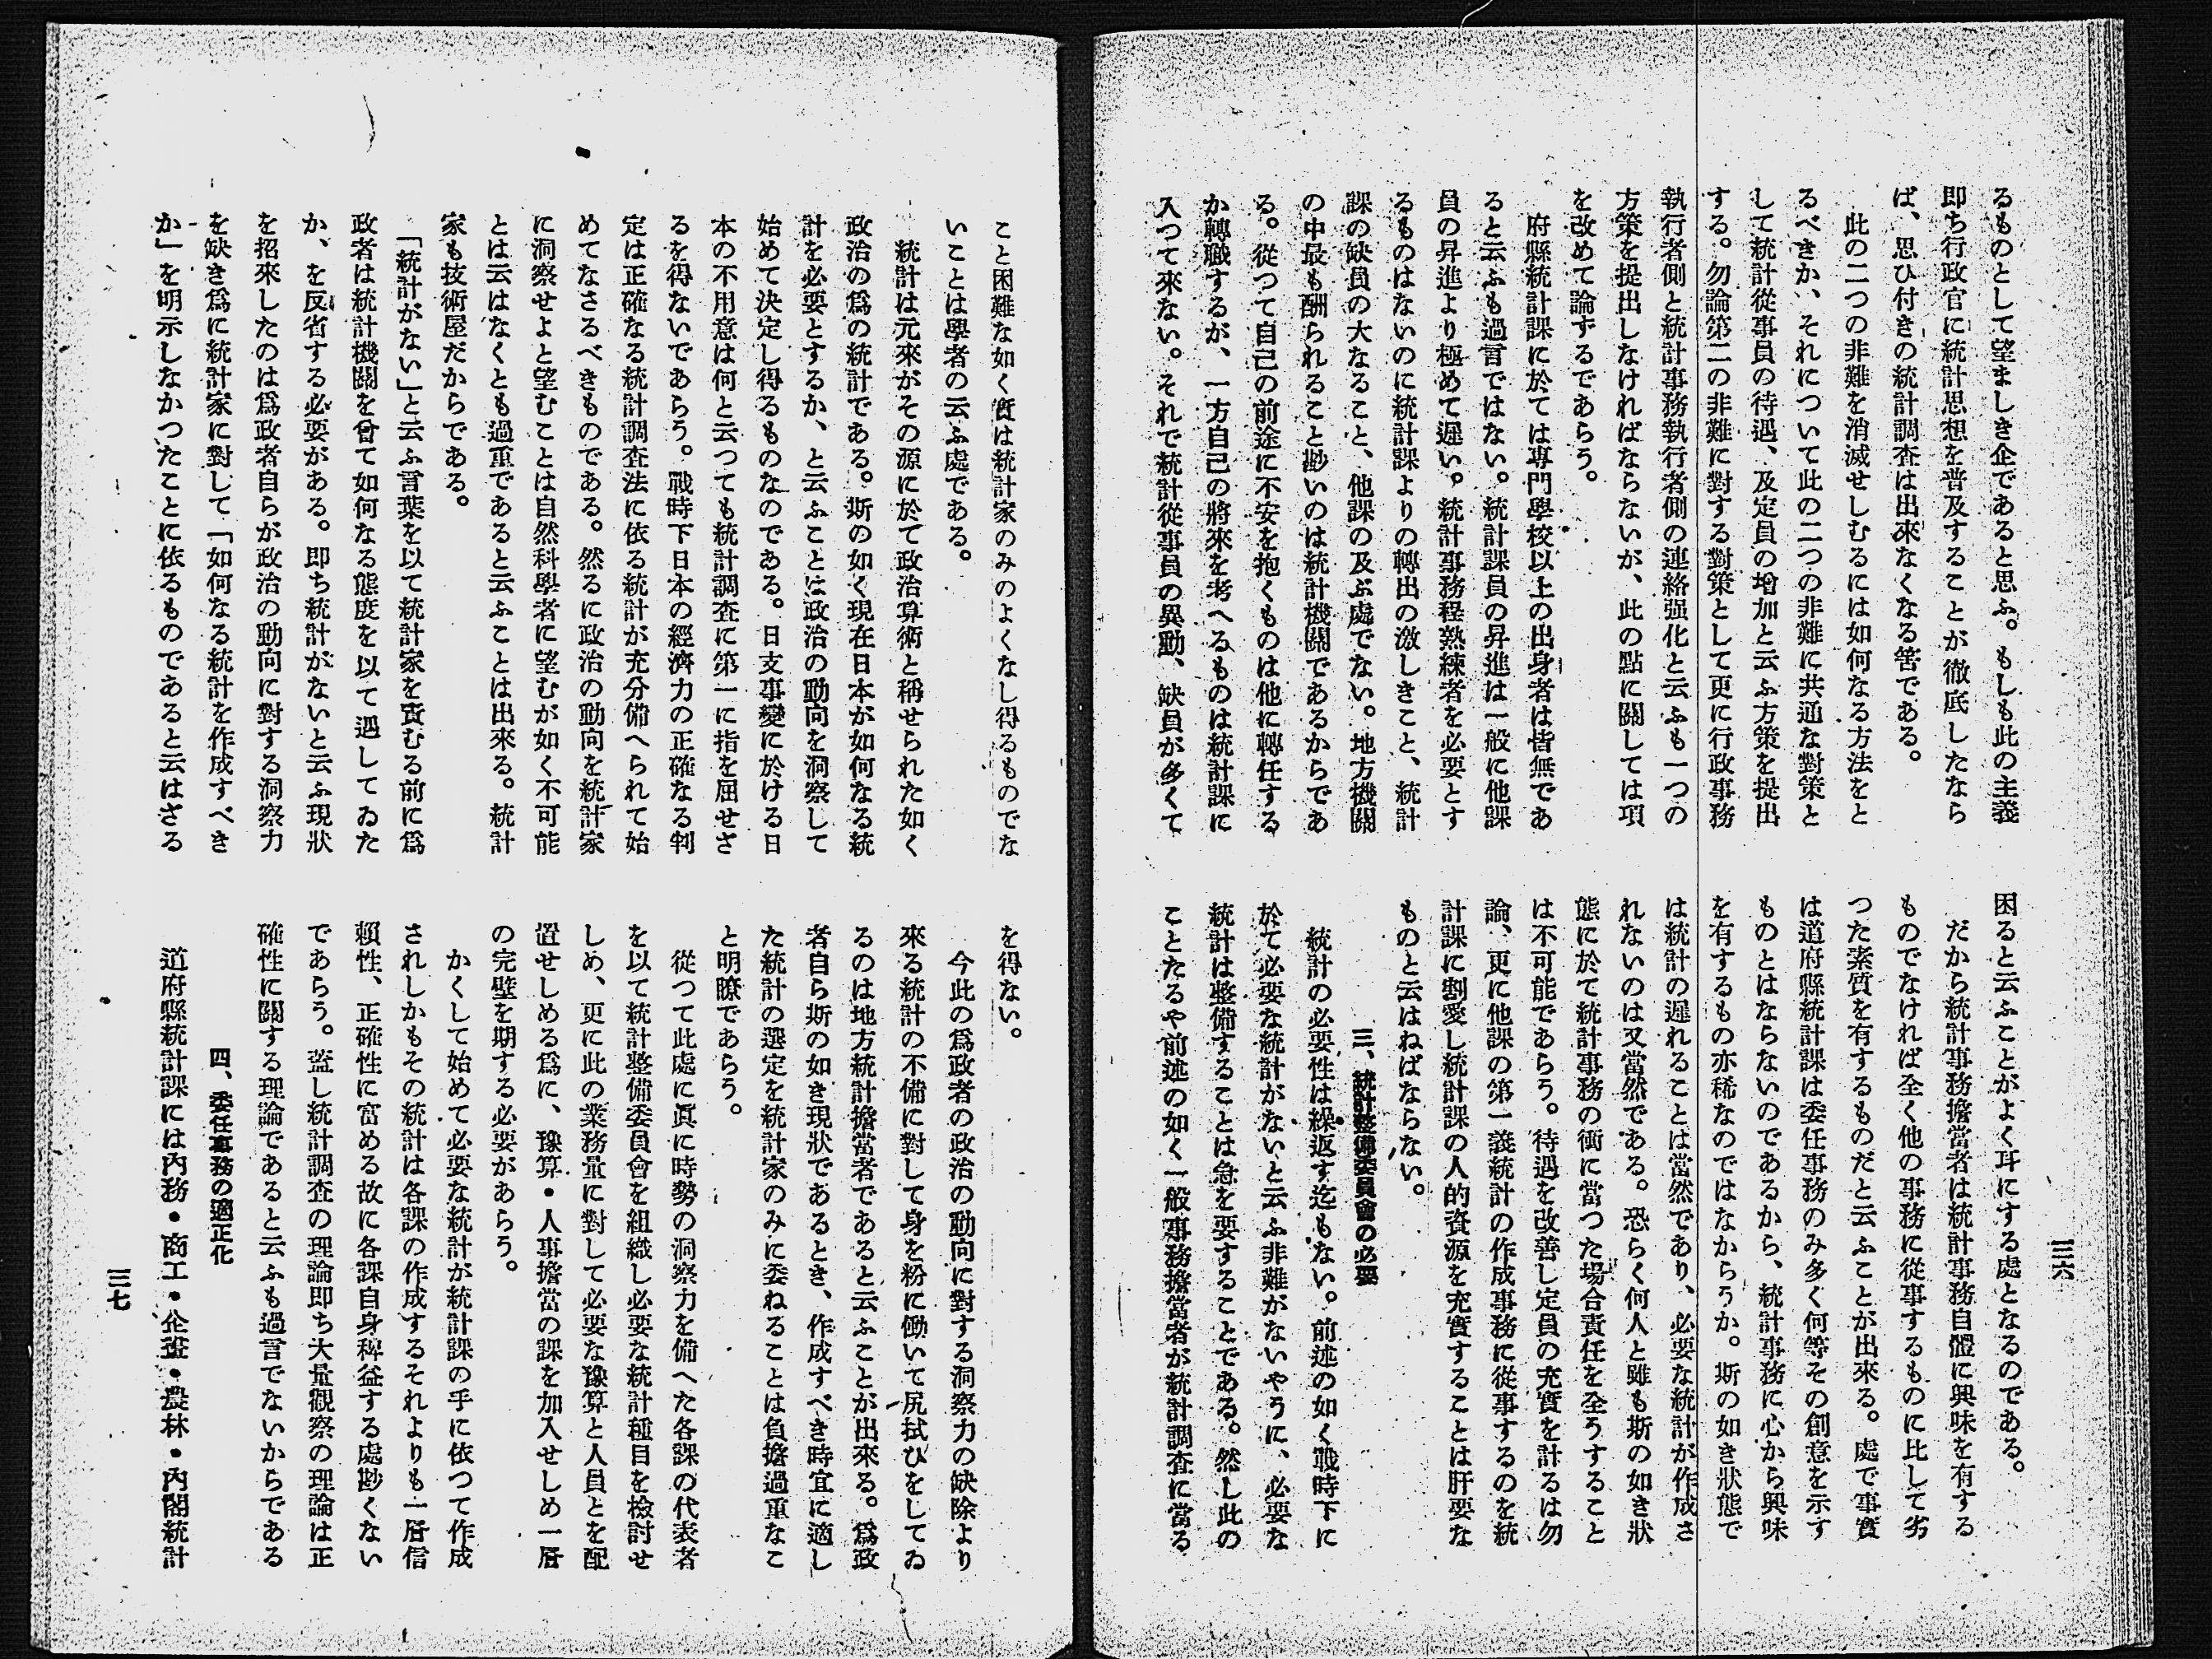 るものとして望ましき企であると思ふ。もしも此の主義
即ち行政官に統計思想を普及することが徹底したなら
ば、思ひ付きの統計調査は出來なくなる筈である。
此の二つの非難を消滅せしむるには如何なる方法をと
るべきか、それについて此の二つの非難に共通な對策と
して統計從事員の待遇、及定員の増加と云ふ方策を提出
する。勿論第二の非難に對する對策として更に行政事務
執行者側と統計事務執行者側の連絡强化と云ふも一つの
方策を提出しなければならないが、此の點に關しては項
を改めて論ずるであらう。
府縣統計課に於ては專門學校以上の出身者は皆無であ
ると云ふも過言ではない。統計課員の昇進は一般に他課
員の昇進より極めて遲い。統計事務程熟練者を必要とす
るものはないのに統計課よりの轉出の激しきこと、統計
課の缺員の大なること、他課の及ぶ處でない。地方機關
の中最も酬られること尠いのは統計機關であるからであ
る。從つて自己の前途に不安を抱くものは他に轉任する
か轉職するが、一方自己の將來を考へるものは統計課に
入つて來ない。それで統計從事員の異動、缺員が多くて
困ると云ふことがよく耳にする處となるのである。
だから統計事務擔當者は統計事務自體に興味を有する
ものでなければ全く他の事務に從事するものに比して劣
つた素質を有するものだと云ふことが出來る。處で事實
は道府縣統計課は委任事務のみ多く何等その創意を示す
ものとはならないのであるから、統計事務に心から興味
を有するもの亦稀なのではなからうか。斯の如き狀態で
は統計の遲れることは當然であり、必要な統計が作成さ
れないのは又當然である。恐らく何人と雖も斯の如き狀
態に於て統計事務の衝に當つた場合責任を全うすること
は不可能であらう。待遇を改善し定員の充實を計るは勿
論、更に他課の第一義統計の作成事務に從事するのを統
計課に割愛し統計課の人的資源を充實することは肝要な
ものと云はねばならない。
三、統計整備委員會の必要
統計の必要性は繰返す迄もない。前述の如く戰時下に
於て必要な統計がないと云ふ非難がないやうに、必要な
統計は整備することは急を要することである。然し此の
ことたるや前述の如く一般事務擔當者が統計調査に當る
三六
こと困難な如く實は統計家のみのよくなし得るものでな
いことは學者の云ふ處である。
統計は元來がその源に於て政治算術と稱せられた如く
政治の爲の統計である。斯の如く現在日本が如何なる統
計を必要とするか、と云ふことは政治の動向を洞察して
始めて決定し得るものなのである。日支事變に於ける日
本の不用意は何と云つても統計調査に第一に指を屈せざ
るを得ないであらう。戰時下日本の經濟力の正確なる判
定は正確なる統計調査法に依る統計が充分備へられて始
めてなさるべきものである。然るに政治の動向を統計家
に洞察せよと望むことは自然科學者に望むが如く不可能
とは云はなくとも過重であると云ふことは出來る。統計
家も技術屋だからである。
「統計がない」と云ふ言葉を以て統計家を責むる前に爲
政者は統計機關を曾て如何なる態度を以て遇してゐた
か、を反省する必要がある。即ち統計がないと云ふ現狀
を招來したのは爲政者自らが政治の動向に對する洞察力
を缺き爲に統計家に對して「如何なる統計を作成すべき
か」を明示しなかつたことに依るものであると云はざる
を得ない。
今此の爲政者の政治の動向に對する洞察力の缺除より
來る統計の不備に對して身を粉に働いて尻拭ひをしてゐ
るのは地方統計擔當者であると云ふことが出來る。爲政
者自ら斯の如き現狀であるとき、作成すべき時宜に適し
た統計の選定を統計家のみに委ねることは負擔過重なこ
と明瞭であらう。
從つて此處に眞に時勢の洞察力を備へた各課の代表者
を以て統計整備委員會を組織し必要な統計種目を檢討せ
しめ、更に此の業務量に對して必要な豫算と人員とを配
置せしめる爲に、豫算・人事擔當の課を加入せしめ一層
の完璧を期する必要があらう。
かくして始めて必要な統計が統計課の手に依つて作成
されしかもその統計は各課の作成するそれよりも一層信
賴性、正確性に富める故に各課自身稗益する處尠くない
であらう。蓋し統計調査の理論即ち大量觀察の理論は正
確性に關する理論であると云ふも過言でないからである
四、委任事務の適正化
道府縣統計課には內務・商工・企畫・農林・內閣統計
三七